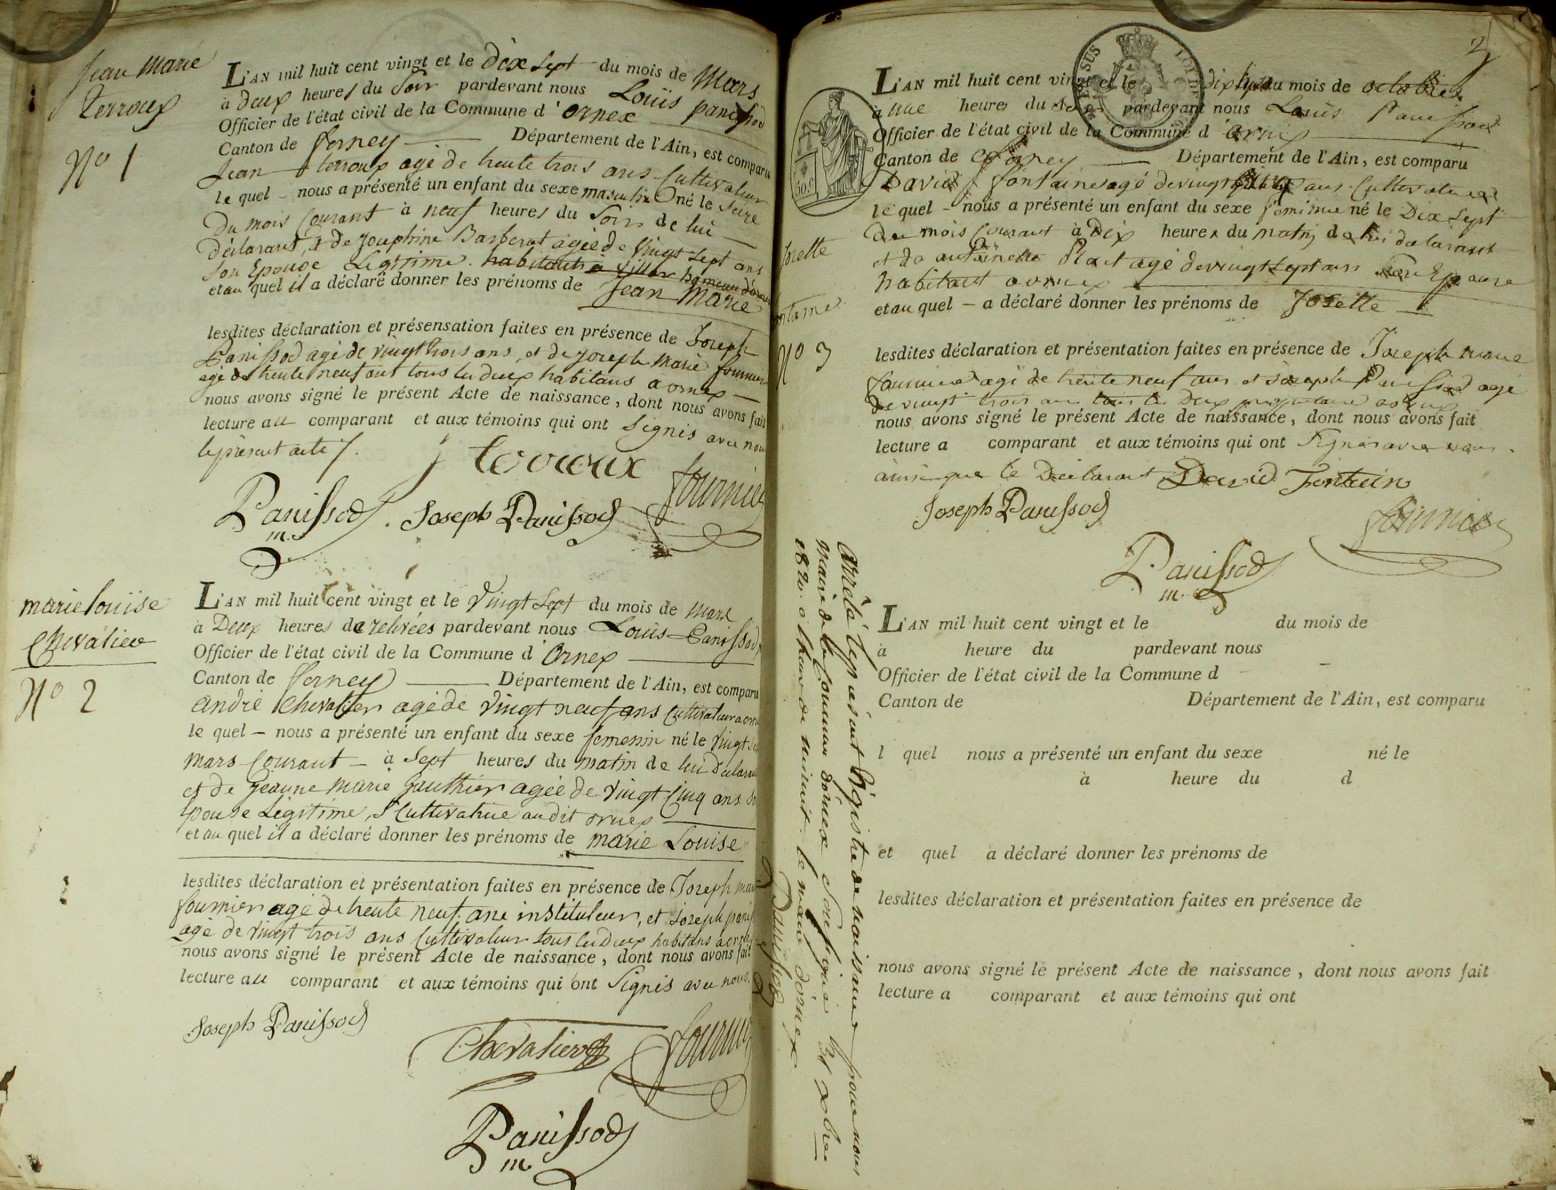 Jean Marie
Terroux
Nº 1
L'AN mil huit cent vingt et le Dix Sept du mois de Mars
à Deux heures du Soir pardevant nous Louis Panissod
Officier de l'état civil de la Commune d'ornex
Canton de ferney Département de l'Ain, est comparu
Jean terroux agé de trente trois ans Cultivateur
le quel nous a présenté un enfant du sexe masculin né le Seize
Du mois Courant à neuf heures du Soir de lui
Déclarant, & de Josephine Barberat agée de Vingt Sept ans
Son Epouse Legitime. habitants a hameau d'ornex
et au quel il a déclaré donner les prénoms de Jean Marie
lesdites déclaration et présensation faites en présence de Joseph
Panissod agé de vingt trois ans, et de Joseph Marie fournier
agé de trente neuf ans tous les deux habitans a ornex
nous avons signé le présent Acte de naissance, dont nous avons fait
lecture au comparant et aux témoins qui ont Signés avec nous
le présent acte
J terroux
Panissod m. Joseph Panissod fournier
marie louise
Chevalier
Nº 2
L'AN mil huit cent vingt et le Vingt Sept du mois de Mars
à Deux heures de relevées pardevant nous Louis Panissod
Officier de l'état civil de la Commune d'Ornex
Canton de ferney Département de l'Ain, est comparu
andré Chevalier agé de vingt neuf ans Cultivateur a ornex
le quel nous a présenté un enfant du sexe femenin né le vingt
mars Courant à Sept heures du matin de lui déclarant
et de Jeanne Marie Gauthier agée de Vingt Cinq ans
Epouse Legitime, Cultivatrice audit ornex
et au quel il a déclaré donner les prénoms de marie Louise
lesdites déclaration et présentation faites en présence de Joseph marie
fournier agé de trente neuf ans instituteur, et Joseph panissod
agé de vingt trois ans Cultivateur tous les deux habitans a ornex
nous avons signé le présent Acte de naissance, dont nous avons fait
lecture au comparant et aux témoins qui ont Signés avec nous
Joseph Panissod Chevalier fournier
Panissod
m.
2
Josette
fontaine
Nº 3
L'AN mil huit cent vingt et le dix huit du mois de octobre
à une heures du pardevant nous Louis Panissod
Officier de l'état civil de la Commune d'ornex
Canton de ferney Département de l'Ain, est comparu
David fontaine agé de vingt ans Cultivateur
le quel nous a présenté un enfant du sexe feminin né le Dix Sept
Du mois Courant à Dix heures du matin de lui déclarant
et de antoinette agé de vingt Sept ans Son Epouse
habitant ornex
et au quel a déclaré donner les prénoms de Josette
lesdites déclaration et présentation faites en présence de Joseph marie
fournier agé de trente neuf ans et Joseph Panissod agé
de vingt trois ans tous les deux a ornex
nous avons signé le présent Acte de naissance, dont nous avons fait
lecture a comparant et aux témoins qui ont Signés avec nous
ainsi que le Declarant David Fontain
Joseph Panissod fournier
Panissod
m.
Arrêté le présent Régistre de naissance par nous
maire de la Commune d'ornex Soussigné le 31 xbre
1820. à l'heure de minuit le maire d'ornex
Panissod
L'AN mil huit cent vingt et le du mois de
à heure du pardevant nous
Officier de l'état civil de la Commune d
Canton de Département de l'Ain, est comparu
l quel nous a présenté un enfant du sexe né le
à heure du d
et quel a déclaré donner les prénoms de
lesdites déclaration et présentation faites en présence de
nous avons signé le présent Acte de naissance, dont nous avons fait
lecture a comparant et aux témoins qui ont